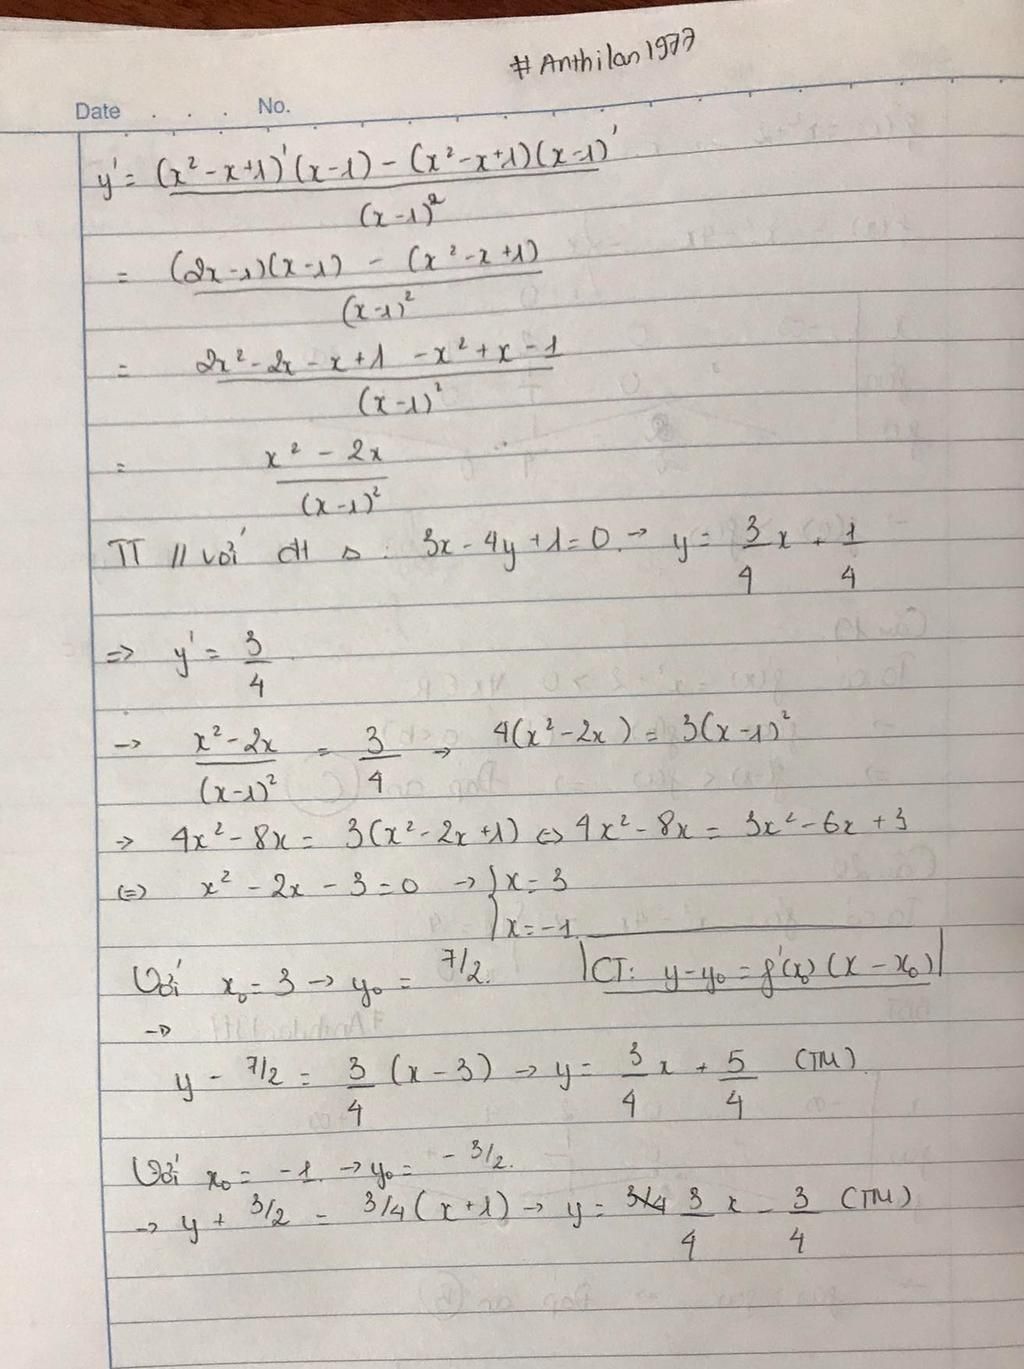 #Anthilan1977
Date . . . No.
y' = (x² - x+1)'(x-1) - (x² - x+1)(x-1)' / (x-1)²
= (2x-1)(x-1) - (x² - x +1) / (x-1)²
= 2x² - 2x - x + 1 - x² + x - 1 / (x-1)²
= x² - 2x / (x-1)²
TT // với đt Δ : 3x - 4y + 1 = 0. → y = 3/4 x + 1/4
=> y' = 3/4
→ x² - 2x / (x-1)² = 3/4 → 4(x² - 2x) = 3(x-1)²
→ 4x² - 8x = 3(x² - 2x + 1) <=> 4x² - 8x = 3x² - 6x + 3
<=> x² - 2x - 3 = 0 → { x = 3
x = -1
Với x₀ = 3 → y₀ = 7/2. |CT: y - y₀ = f'(x₀)(x - x₀)|
→
y - 7/2 = 3/4 (x - 3) → y = 3/4 x + 5/4 (TM)
Với x₀ = -1. → y₀ = - 3/2.
→ y + 3/2 = 3/4 (x+1) → y = 3/4 x - 3/4 (TM)